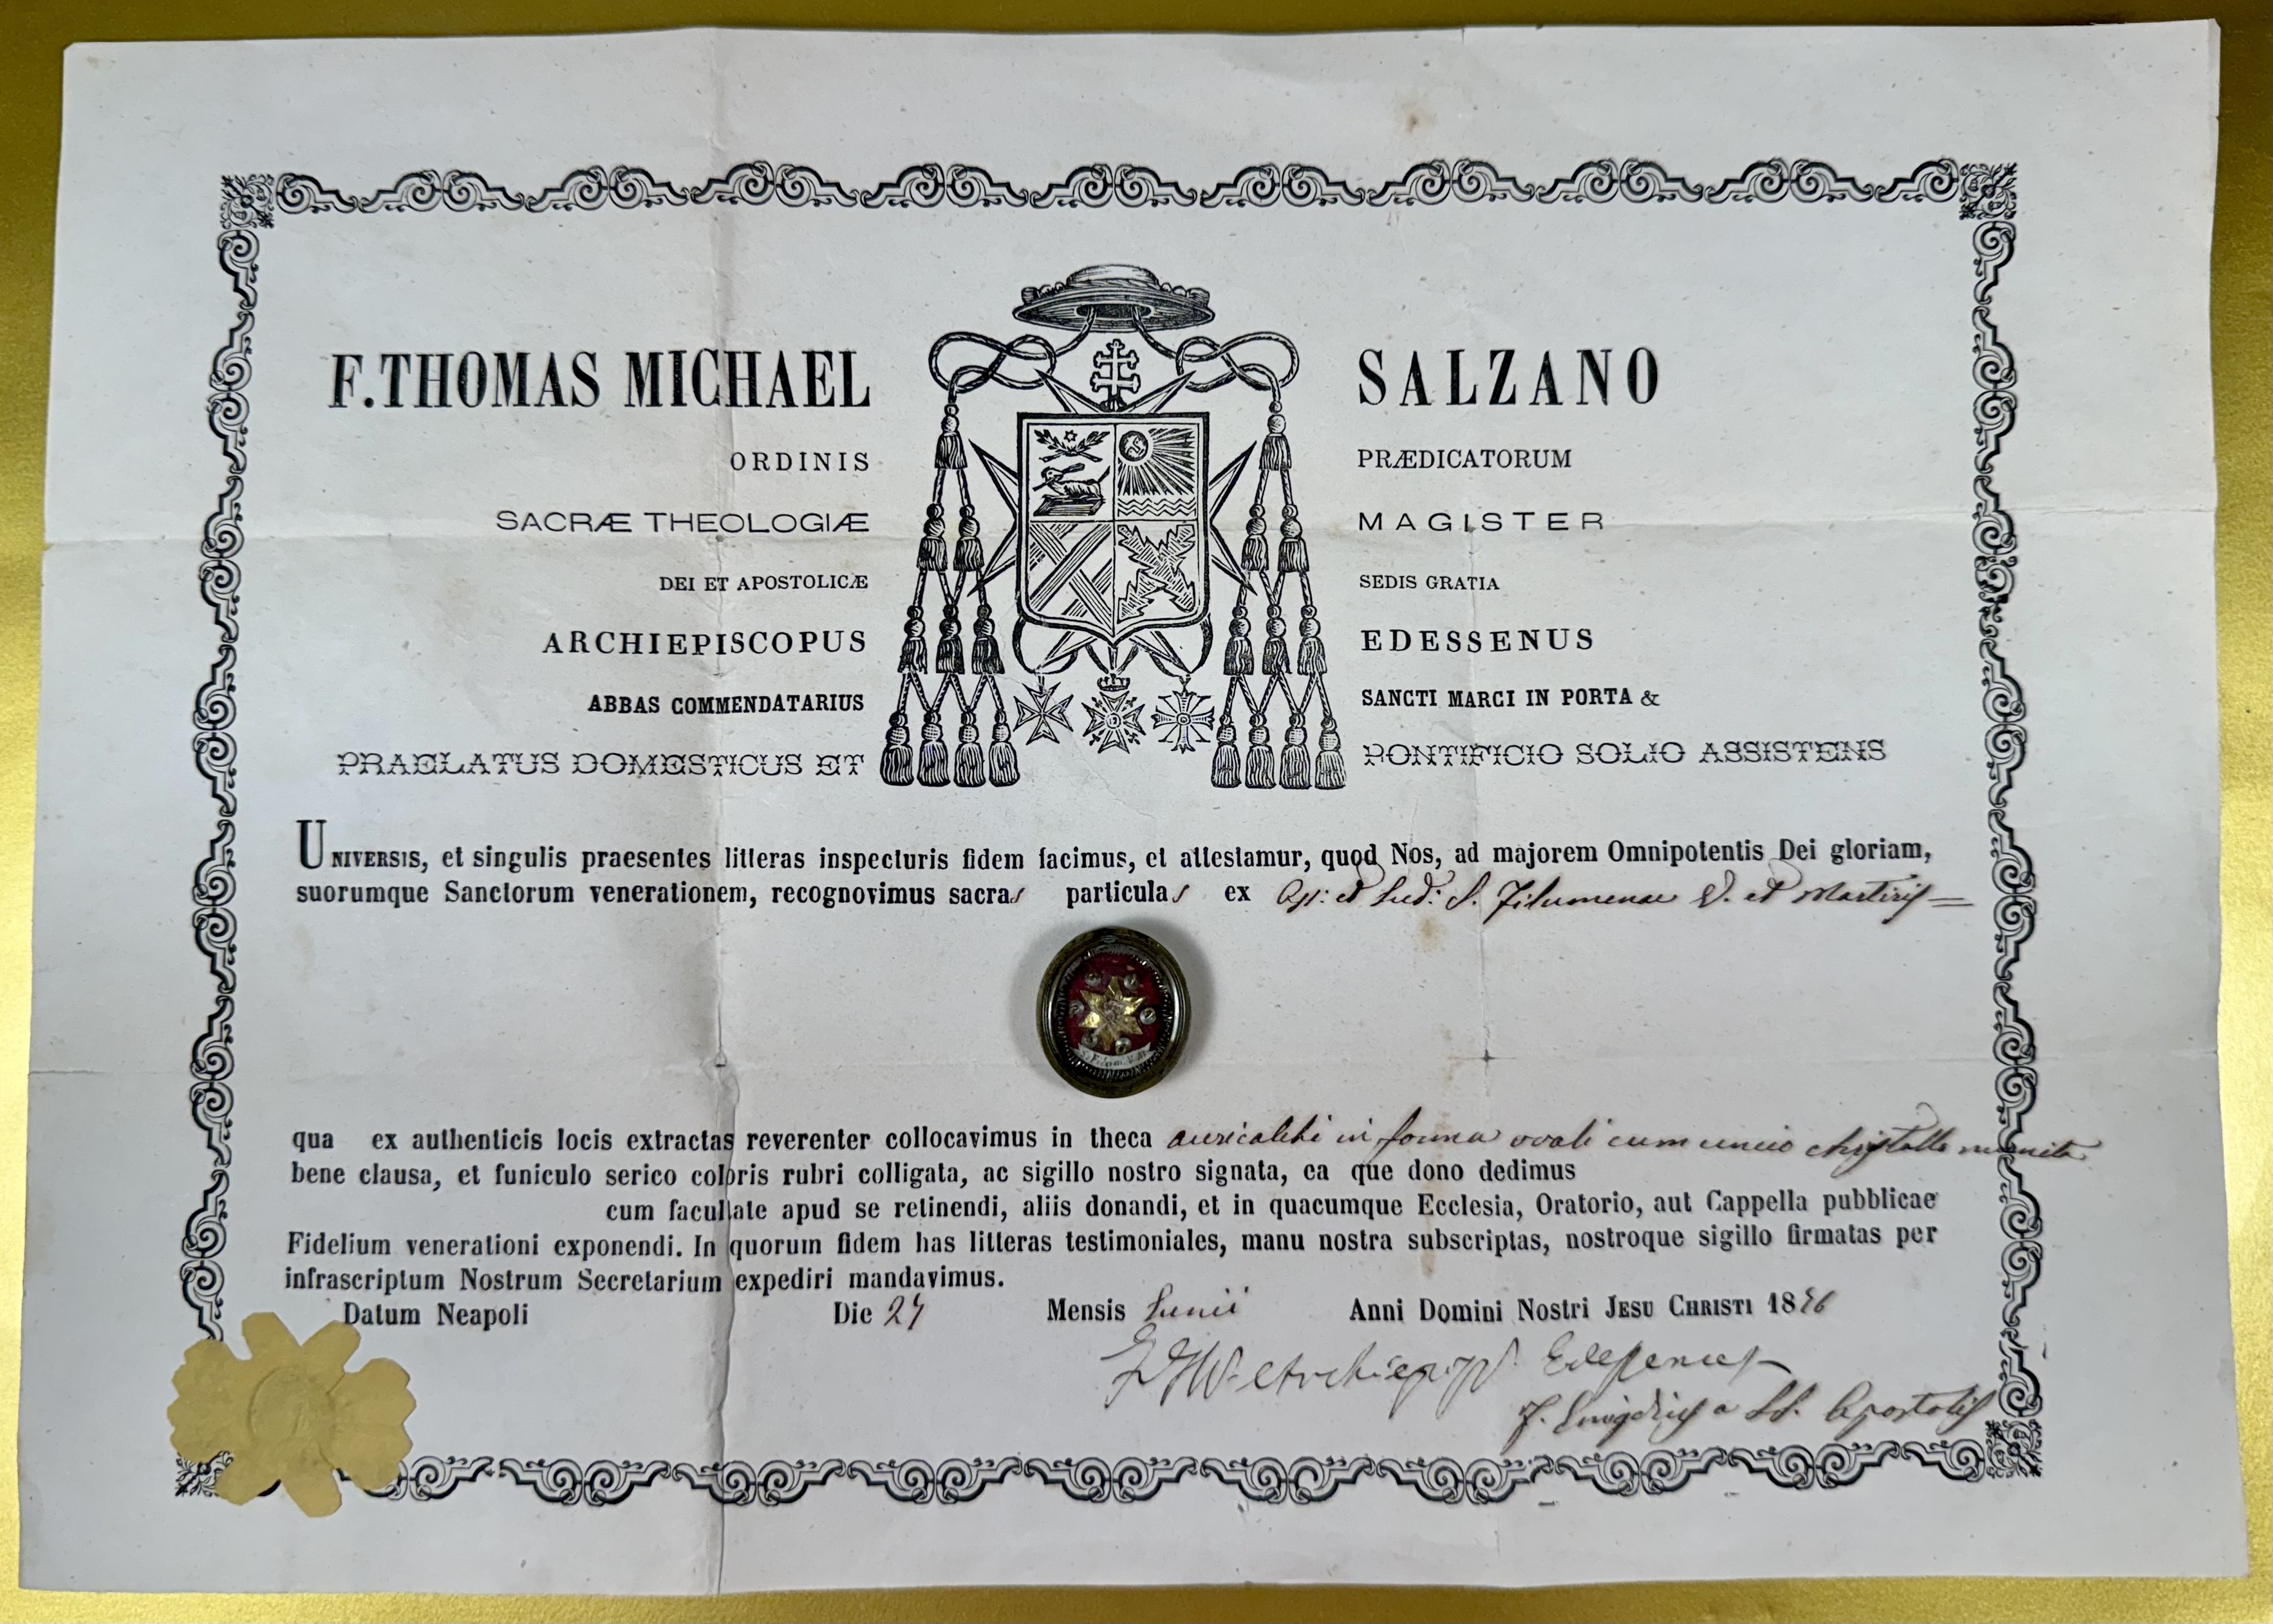 F. THOMAS MICHAEL SALZANO
ORDINIS PRÆDICATORUM
SACRÆ THEOLOGIÆ MAGISTER
DEI ET APOSTOLICÆ SEDIS GRATIA
ARCHIEPISCOPUS EDESSENUS
ABBAS COMMENDATARIUS SANCTI MARCI IN PORTA &
PRAELATUS DOMESTICUS ET PONTIFICIO SOLIO ASSISTENS
UNIVERSIS, et singulis praesentes litteras inspecturis fidem facimus, et attestamur, quod Nos, ad majorem Omnipotentis Dei gloriam,
suorumque Sanctorum venerationem, recognovimus sacras particulas ex et S. Filumenae V. et Martiris
S. Filom. V. M.
qua ex authenticis locis extractas reverenter collocavimus in theca auricalchi in forma ovali cum unico christallo munita
bene clausa, et funiculo serico coloris rubri colligata, ac sigillo nostro signata, ea que dono dedimus
cum facultate apud se retinendi, aliis donandi, et in quacumque Ecclesia, Oratorio, aut Cappella pubblicae
Fidelium venerationi exponendi. In quorum fidem has litteras testimoniales, manu nostra subscriptas, nostroque sigillo firmatas per
infrascriptum Nostrum Secretarium expediri mandavimus.
Datum Neapoli Die 24 Mensis Iunii Anni Domini Nostri JESU CHRISTI 1876
Edessenus
a SS. Apostolis